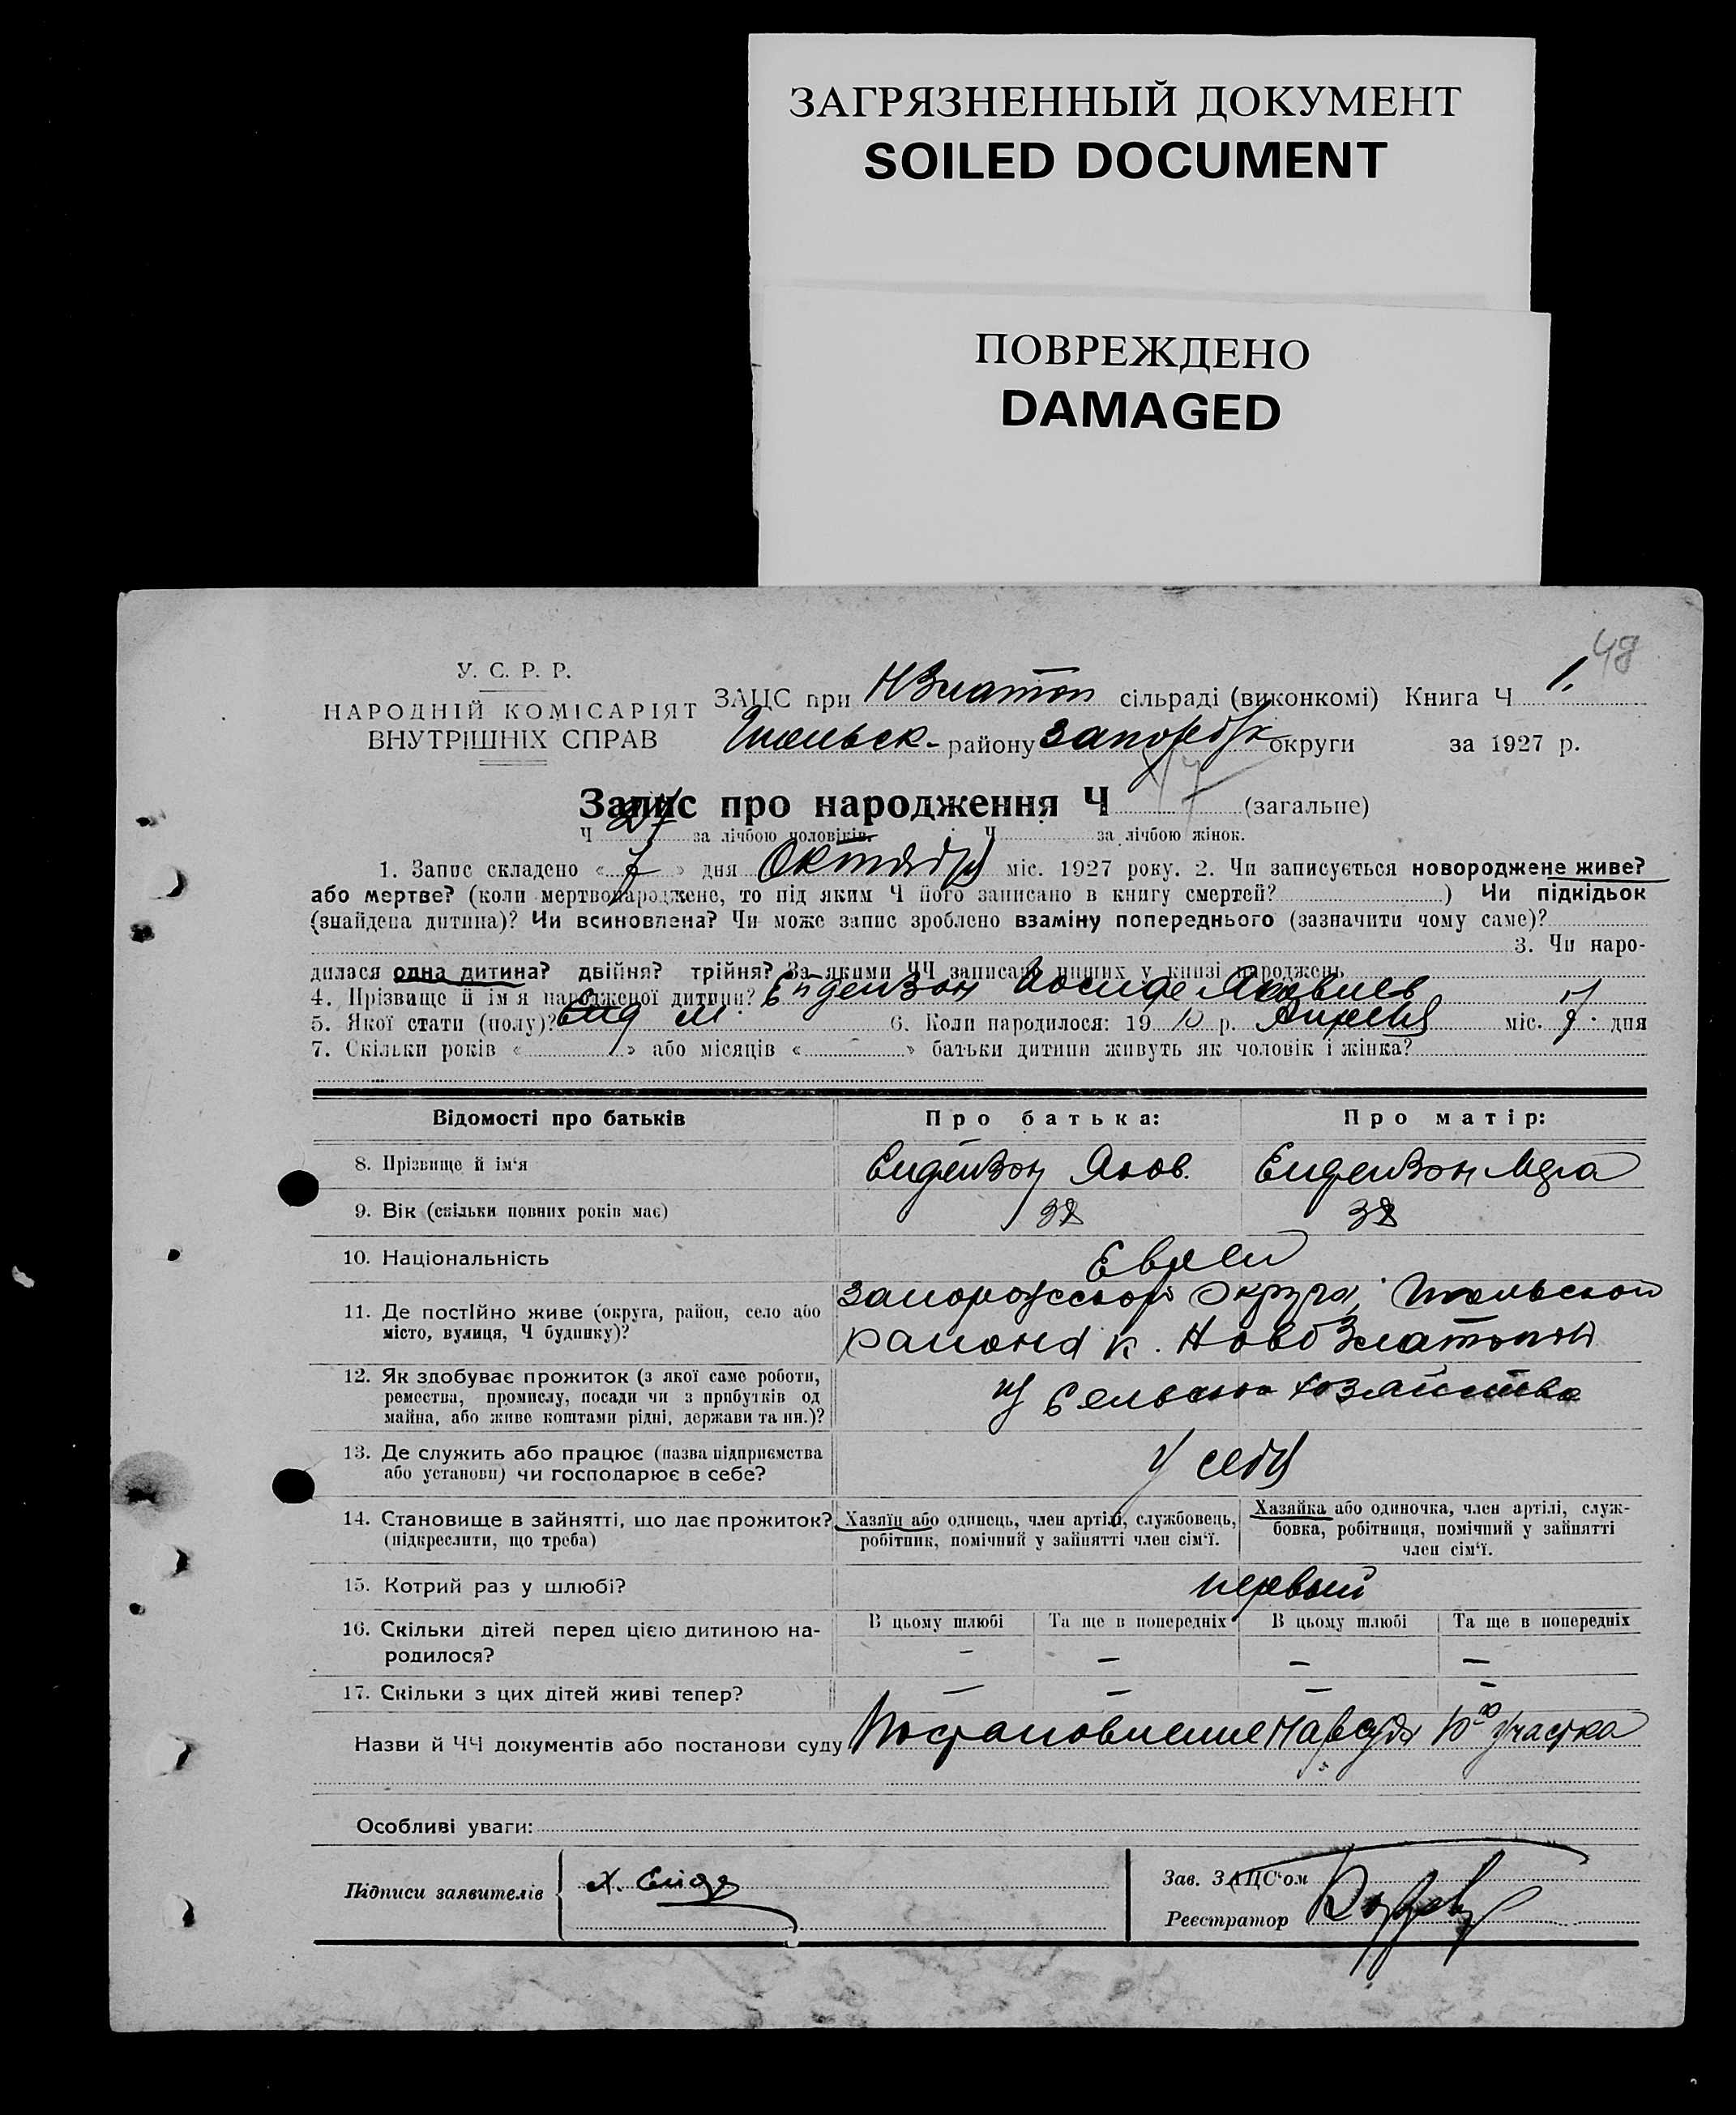 ЗАГРЯЗНЕННЫЙ ДОКУМЕНТ
SOILED DOCUMENT
ПОВРЕЖДЕНО
DAMAGED
48
У. С. Р. Р.
НАРОДНІЙ КОМІСАРІЯТ
ВНУТРІШНІХ СПРАВ
ЗАЦС при НЗлатоп сільраді (виконкомі) Книга Ч 1.
району Запорож округи за 1927 р.
Запис про народження Ч 47 (загальне)
Ч 27 за лічбою чоловіків. Ч за лічбою жінок.
1. Запис складено « 7 » дня Октября міс. 1927 року. 2. Чи записується новороджене живе?
або мертве? (коли мертвонароджене, то під яким Ч його записано в книгу смертей? ) Чи підкідьок
(знайдена дитина)? Чи всиновлена? Чи може запис зроблено взаміну попереднього (зазначити чому саме)?
3. Чи наро-
дилася одна дитина? двійня? трійня? За якими ЧЧ записані инших у книзі народжень
4. Прізвище й ім'я народженої дитини? Ейдензон Иосиф Яковлев
5. Якої стати (полу)? м. 6. Коли народилося: 19 10 р. Апреля міс. 7 дня
7. Скільки років « » або місяців « » батьки дитини живуть як чоловік і жінка?
Відомості про батьків Про батька: Про матір:
8. Прізвище й ім'я Ейдензон Яков. Ейдензон
9. Вік (скільки повних років має) 38 38
10. Національність Евреи
11. Де постійно живе (округа, район, село або
місто, вулиця, Ч будинку)?
Запорожской округа,
района к. НовоЗлатополь
12. Як здобуває прожиток (з якої саме роботи,
ремества, промислу, посади чи з прибутків од
майна, або живе коштами рідні, держави та ин.)?
Сельского хозяйства
13. Де служить або працює (назва підприємства
або установи) чи господарює в себе?
У себя
14. Становище в зайнятті, що дає прожиток?
(підкреслити, що треба)
Хазяїн або одинець, член артілі, службовець,
робітник, помічний у зайнятті член сім'ї.
Хазяйка або одиночка, член артілі, служ-
бовка, робітниця, помічний у зайнятті
член сім'ї.
15. Котрий раз у шлюбі? первый
16. Скільки дітей перед цією дитиною на-
родилося?
В цьому шлюбі Та ще в попередніх В цьому шлюбі Та ще в попередніх
– – – –
17. Скільки з цих дітей живі тепер? – – – –
Назви й ЧЧ документів або постанови суду Постановление Нарсуда 10го участка
Особливі уваги:
Підписи заявителів Х. Ейде
Зав. ЗАЦС'ом
Реєстратор